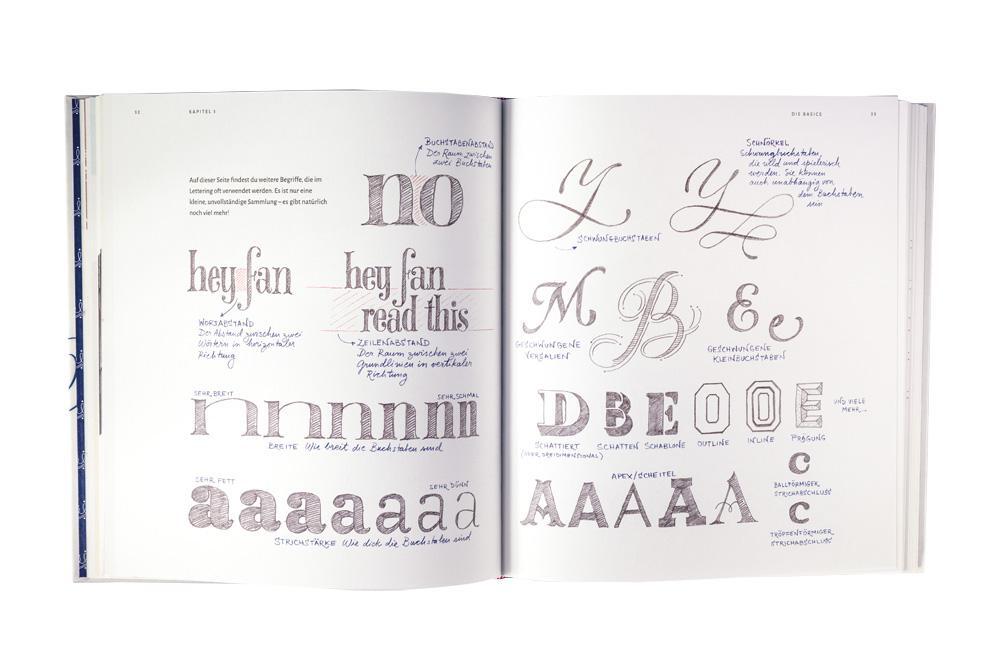 32 KAPITEL 1
Auf dieser Seite findest du weitere Begriffe, die im
Lettering oft verwendet werden. Es ist nur eine
kleine, unvollständige Sammlung – es gibt natürlich
noch viel mehr!
BUCHSTABENABSTAND
Der Raum zwischen
zwei Buchstaben
no
hey fan
WORTABSTAND
Der Abstand zwischen zwei
Wörtern in horizontaler
Richtung
hey fan
read this
ZEILENABSTAND
Der Raum zwischen zwei
Grundlinien in vertikaler
Richtung
SEHR BREIT
SEHR SCHMAL
nnnnnnn
BREITE Wie breit die Buchstaben sind
SEHR FETT
SEHR DÜNN
aaaaaaa
STRICHSTÄRKE Wie dick die Buchstaben sind
DIE BASICS 33
Y Y
SCHNÖRKEL
Schwungbuchstaben,
die wild und spielerisch
werden. Sie können
auch unabhängig von
dem Buchstaben
sein
SCHWUNGBUCHSTABEN
M B E e
GESCHWUNGENE
VERSALIEN
GESCHWUNGENE
KLEINBUCHSTABEN
D B E O O E
UND VIELE
MEHR...
SCHATTIERT
(ODER DREIDIMENSIONAL)
SCHATTEN
SCHABLONE
OUTLINE
INLINE
PRÄGUNG
APEX/SCHEITEL
AAAAA
c
BALLFÖRMIGER
STRICHABSCHLUSS
c
TROPFENFÖRMIGER
STRICHABSCHLUSS